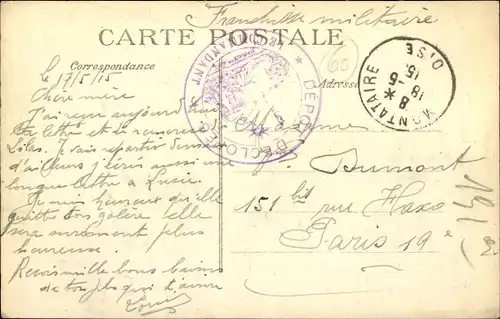 Franchise militaire
CARTE POSTALE
Correspondance
Adresse
60
le 17/5/15
Chère mère
J'ai reçu aujourd'hui
ta lettre et
Lilas. Je vais repartir
d'ailleurs j'écris aussi une
longue lettre à Lucie.
Je suis heureux qu'elle
quitte son galère elle
sera surement plus
heureuse.
Reçois mille bons baisers
de ton fils qui t'aime
Louis
Madame
Dumont
151 bis rue Haxo
Paris 19e
COMMANDANT
DEPOT D'ECLOPES
MONTATAIRE
OISE
8 *
18 -5
15